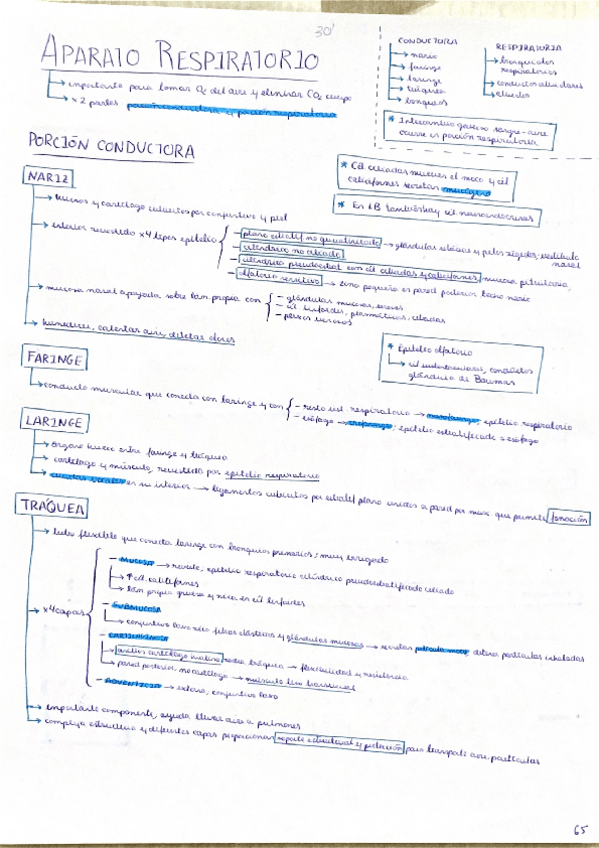 30'
APARATO RESPIRATORIO
→ importante para tomar O₂ del aire y eliminar CO₂ cuerpo
→ x2 partes: porción conductora y porción respiratoria
CONDUCTORA
→ nariz
→ faringe
→ laringe
→ tráquea
→ bronquios
RESPIRATORIA
→ bronquiolos
respiratorios
→ conductos alveolares
→ alveolos
* Intercambio gaseoso sangre-aire
ocurre en porción respiratoria
PORCIÓN CONDUCTORA
* Cél ciliadas mueven el moco y cél
caliciformes secretan mucígeno
* En EB también hay cél neuroendocrinas
NARIZ
→ huesos y cartílago cubiertos por conjuntivo y piel
→ interior revestido x4 tipos epitelio
- plano estratif no queratinizado → glándulas sebáceas y pelos rígidos, vestíbulo
nasal
- cilíndrico no ciliado
- cilíndrico pseudoestrat con cél ciliadas y caliciformes, mucosa pituitaria,
- olfatorio sensitivo → zona pequeña en pared posterior techo nariz
→ mucosa nasal apoyada sobre lám. propia con
- glándulas mucosas, serosas
- cél linfoides, plasmáticas, cebadas
- plexos venosos
→ humedecer, calentar aire, detectar olores
* Epitelio olfatorio
→ cél sustentaculares, conductos
glándula de Bowman
FARINGE
→ conducto muscular que conecta con laringe y con
- resto vst. respiratorio → nasofaringe, epitelio respiratorio
- esófago → orofaringe; epitelio estratificado = esófago
LARINGE
→ órgano hueco entre faringe y tráquea
→ cartílago y músculo, revestido por epitelio respiratorio
→ cuerdas vocales en su interior → ligamentos cubiertos por estratif plano unidos a pared por músc que permite fonación
TRÁQUEA
→ tubo flexible que conecta laringe con bronquios primarios; muy irrigado
→ x4 capas
- MUCOSA → reviste, epitelio respiratorio cilíndrico pseudoestratificado ciliado
→ ↑ cél. caliciformes
→ lám propia gruesa y rica en cél linfoides
- SUBMUCOSA
→ conjuntivo laxo rico fibras elásticas y glándulas mucosas → secretan película moco detiene partículas inhaladas
- CARTILAGINOSA
→ anillos cartílago hialino rodea tráquea → flexibilidad y resistencia
→ pared posterior, no cartílago → músculo liso transversal
- ADVENTICIA → externa, conjuntivo laxo
→ importante componente, ayuda llevar aire a pulmones
→ compleja estructura y diferentes capas proporcionan soporte estructural y protección para transporte aire, partículas
65